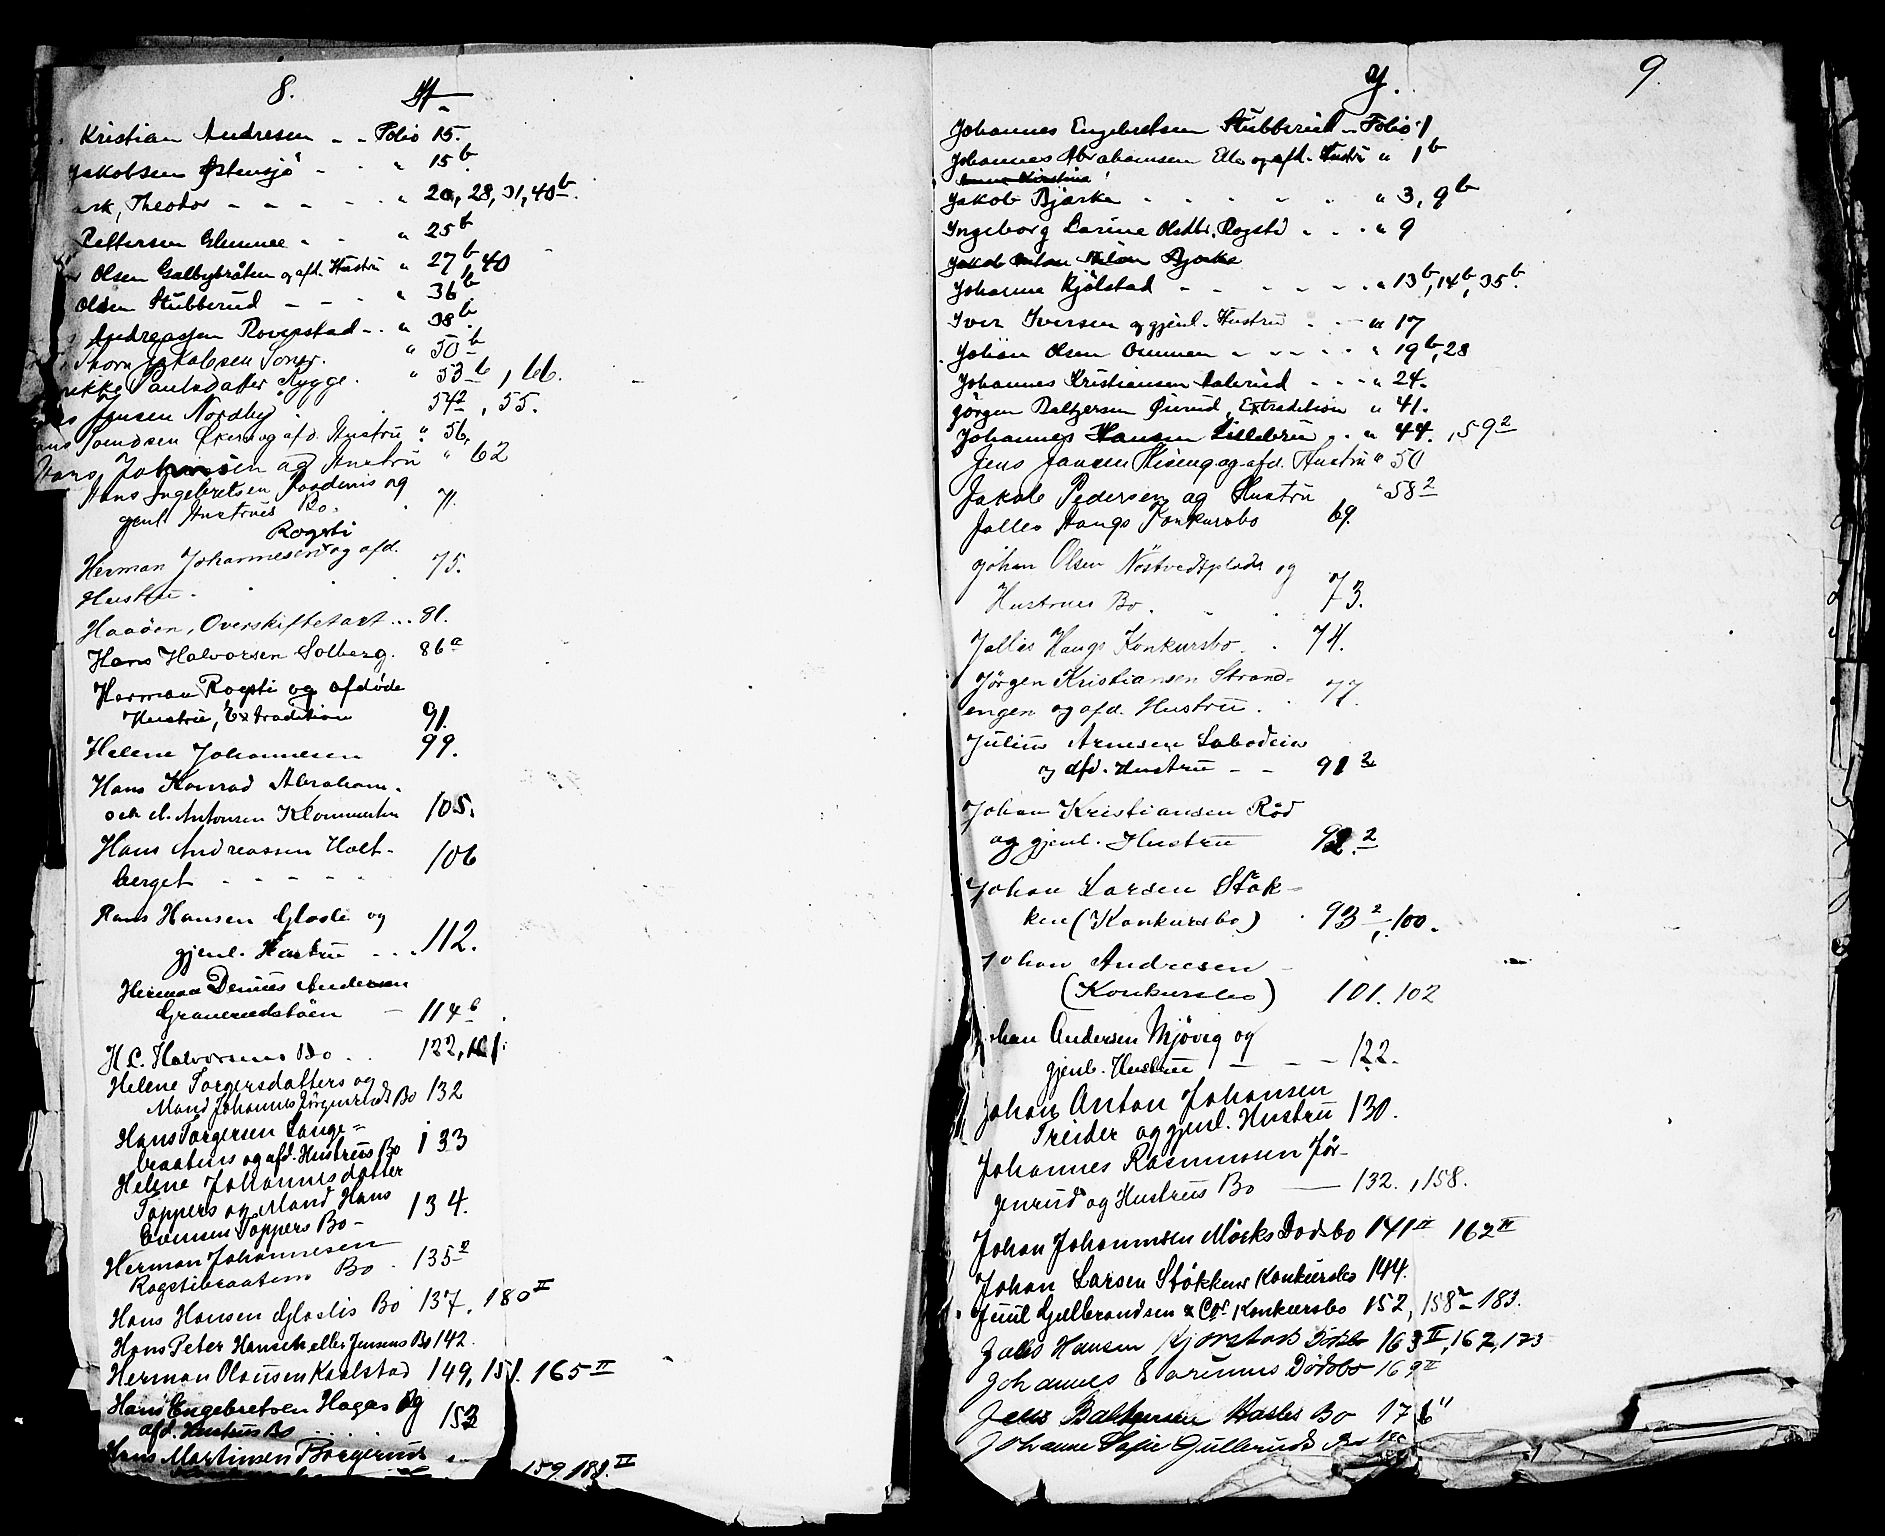 8. H
Kristian Andresen - - Folio 15.
Jakobsen Østensjö - - " 15b
ark, Theodor - - - - " 20, 28, 31, 40b.
Pettersen Glennee - - " 25b
Olsen Galbybråten og afl. Hustru " 27b, 40
Olsen Stubberud - - - " 36b
Andreassen Roverstad - - " 38b
Thorn Jakobsen Toner. " 50b
rikke Paulsdatter Rygge. " 53b, 66.
Jensen Nordby 54 2, 55.
Svendsen Økern og afd. Hustru " 56.
Hans Johnsen og Hustru " 62
Hans Ingebretsen og
gjenl. Hustrues Bo. 71.
Rogsti
Herman Johannesen og afd.
Hustru. 75.
Haaöen, Overskiftetart... 81.
Hans Halvorsen Solberg. 86a
Herman Rogsti og afdøde
Hustru, Extradition 91.
Helene Johannesen 99.
Hans Konrad Abraham-
sen el. Antonsen 105.
Hans Andreassen Holt-
berget - - - - - 106
Hans Hansen Glosli og
gjenl. Hustru - . . 112.
Herman Denius Andersen
Granerudstöen - 114b.
H. C. Halvorsens Bo . . 122, 161.
Helene Torgersdatters og
Mand Johannes Jörgenruds Bo 132
Hans Torgersen Lange=
braatens og afd. Hustrues Bo 133
Helene Johannesdatter
Toppers og Mand Hans
Evensen Toppers Bo - 134.
Herman Johannesen
Rogstibraatens Bo . 135 2
Hans Hansen Gloslis Bo 137, 180 II
Hans Peter Hansen eller Jensens Bo 142.
Herman Olausen Kaalstad 149, 151. 165 II
Hans Engebretsen Hagas og
afd. Hustrus Bo 153
Hans Martinsen Börgerud
159 181. II
J. 9.
Johannes Engebretsen Stubberud - Folio 1,
Johannes Abrahamsen Elle og afd. Hustru " 1b
Anne Kirstine
Jakob Bjarke - - - - - " 3, 9b
Ingeborg Larine Olsdtr. Rogsti . . . " 9
Jakob Bjarke
Johanne Kjölstad - - - - - . " 13b, 14b, 35b.
Iver Iversen og gjenl. Hustru . . - " 17
Johan Olsen Ommen - - - - " 19b, 28
Johannes Kristiansen Aalerud - - - " 24.
Jörgen Baltzersen Öierud, Extradition " 41.
Johannes Hansen Lillebru . . " 44., 59 2
Jens Jansen Kiseng og afd. Hustru " 50
Jakob Pedersen og Hustru " 58 2
Jalles Haugs Konkursbo 69.
Johan Olsen Nöstvedtplads og
Hustrues Bo. " . 73.
Jalles Haugs Konkursbo. . 74.
Jørgen Kristiansen Strand-
engen og afd. Hustru . . 77.
Julius Arnesen Labodein
og afd. Hustru - - 91 2
Johan Kristiansen Röd
og gjenl. Hustru 92. 2
Johan Larsen Stök-
ken (Konkursbo) . 93 2, 100.
Johan Andresen -
(Konkursbo) 101. 102
Johan Andersen Mjövig og
gjenl. Hustru - - - 122.
Johan Anton Johansen
Treider og gjenl. Hustru 130.
Johannes Rasmussen Jör-
genrud og Hustrus Bo - 132., 158.
Johan Johannesen Mörks Dødsbo 141 II 162 II
Johan Larsen Stökkens Konkursbo 144.
Juul Gulbrandsen & Cos. Konkursbo 152, 158 2 183.
Jalles Hansen Kjörstads Dödsbo 163 II, 167, 173
Johannes Dödsbo 169 II
Jens Baltzersen Hasles Bo 176 II
Johanne Sofie Gulleruds Bo 180